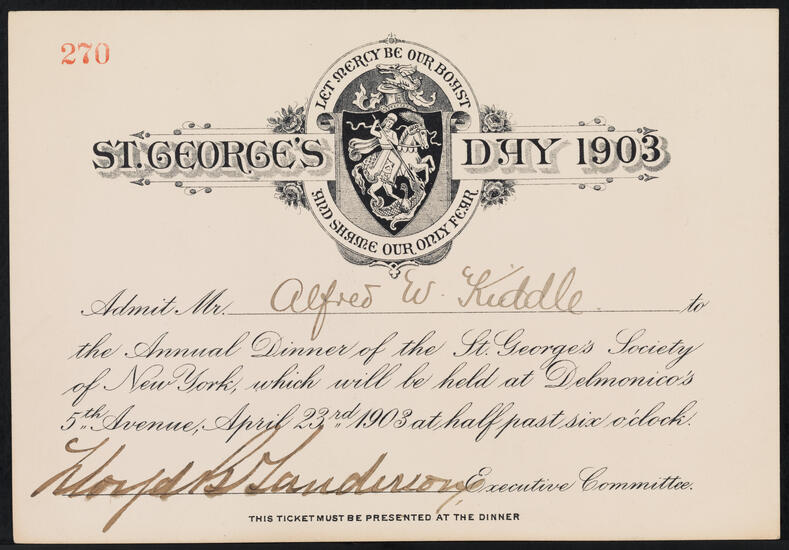 270
LET MERCY BE OUR BOAST
ST. GEORGE'S DAY 1903
AND SHAME OUR ONLY FEAR
Admit Mr. Alfred W. Kiddle to
the Annual Dinner of the St. George's Society
of New York, which will be held at Delmonico's
5th Avenue, April 23rd 1903 at half past six o'clock.
Lloyd B. Sanderson, Executive Committee.
THIS TICKET MUST BE PRESENTED AT THE DINNER